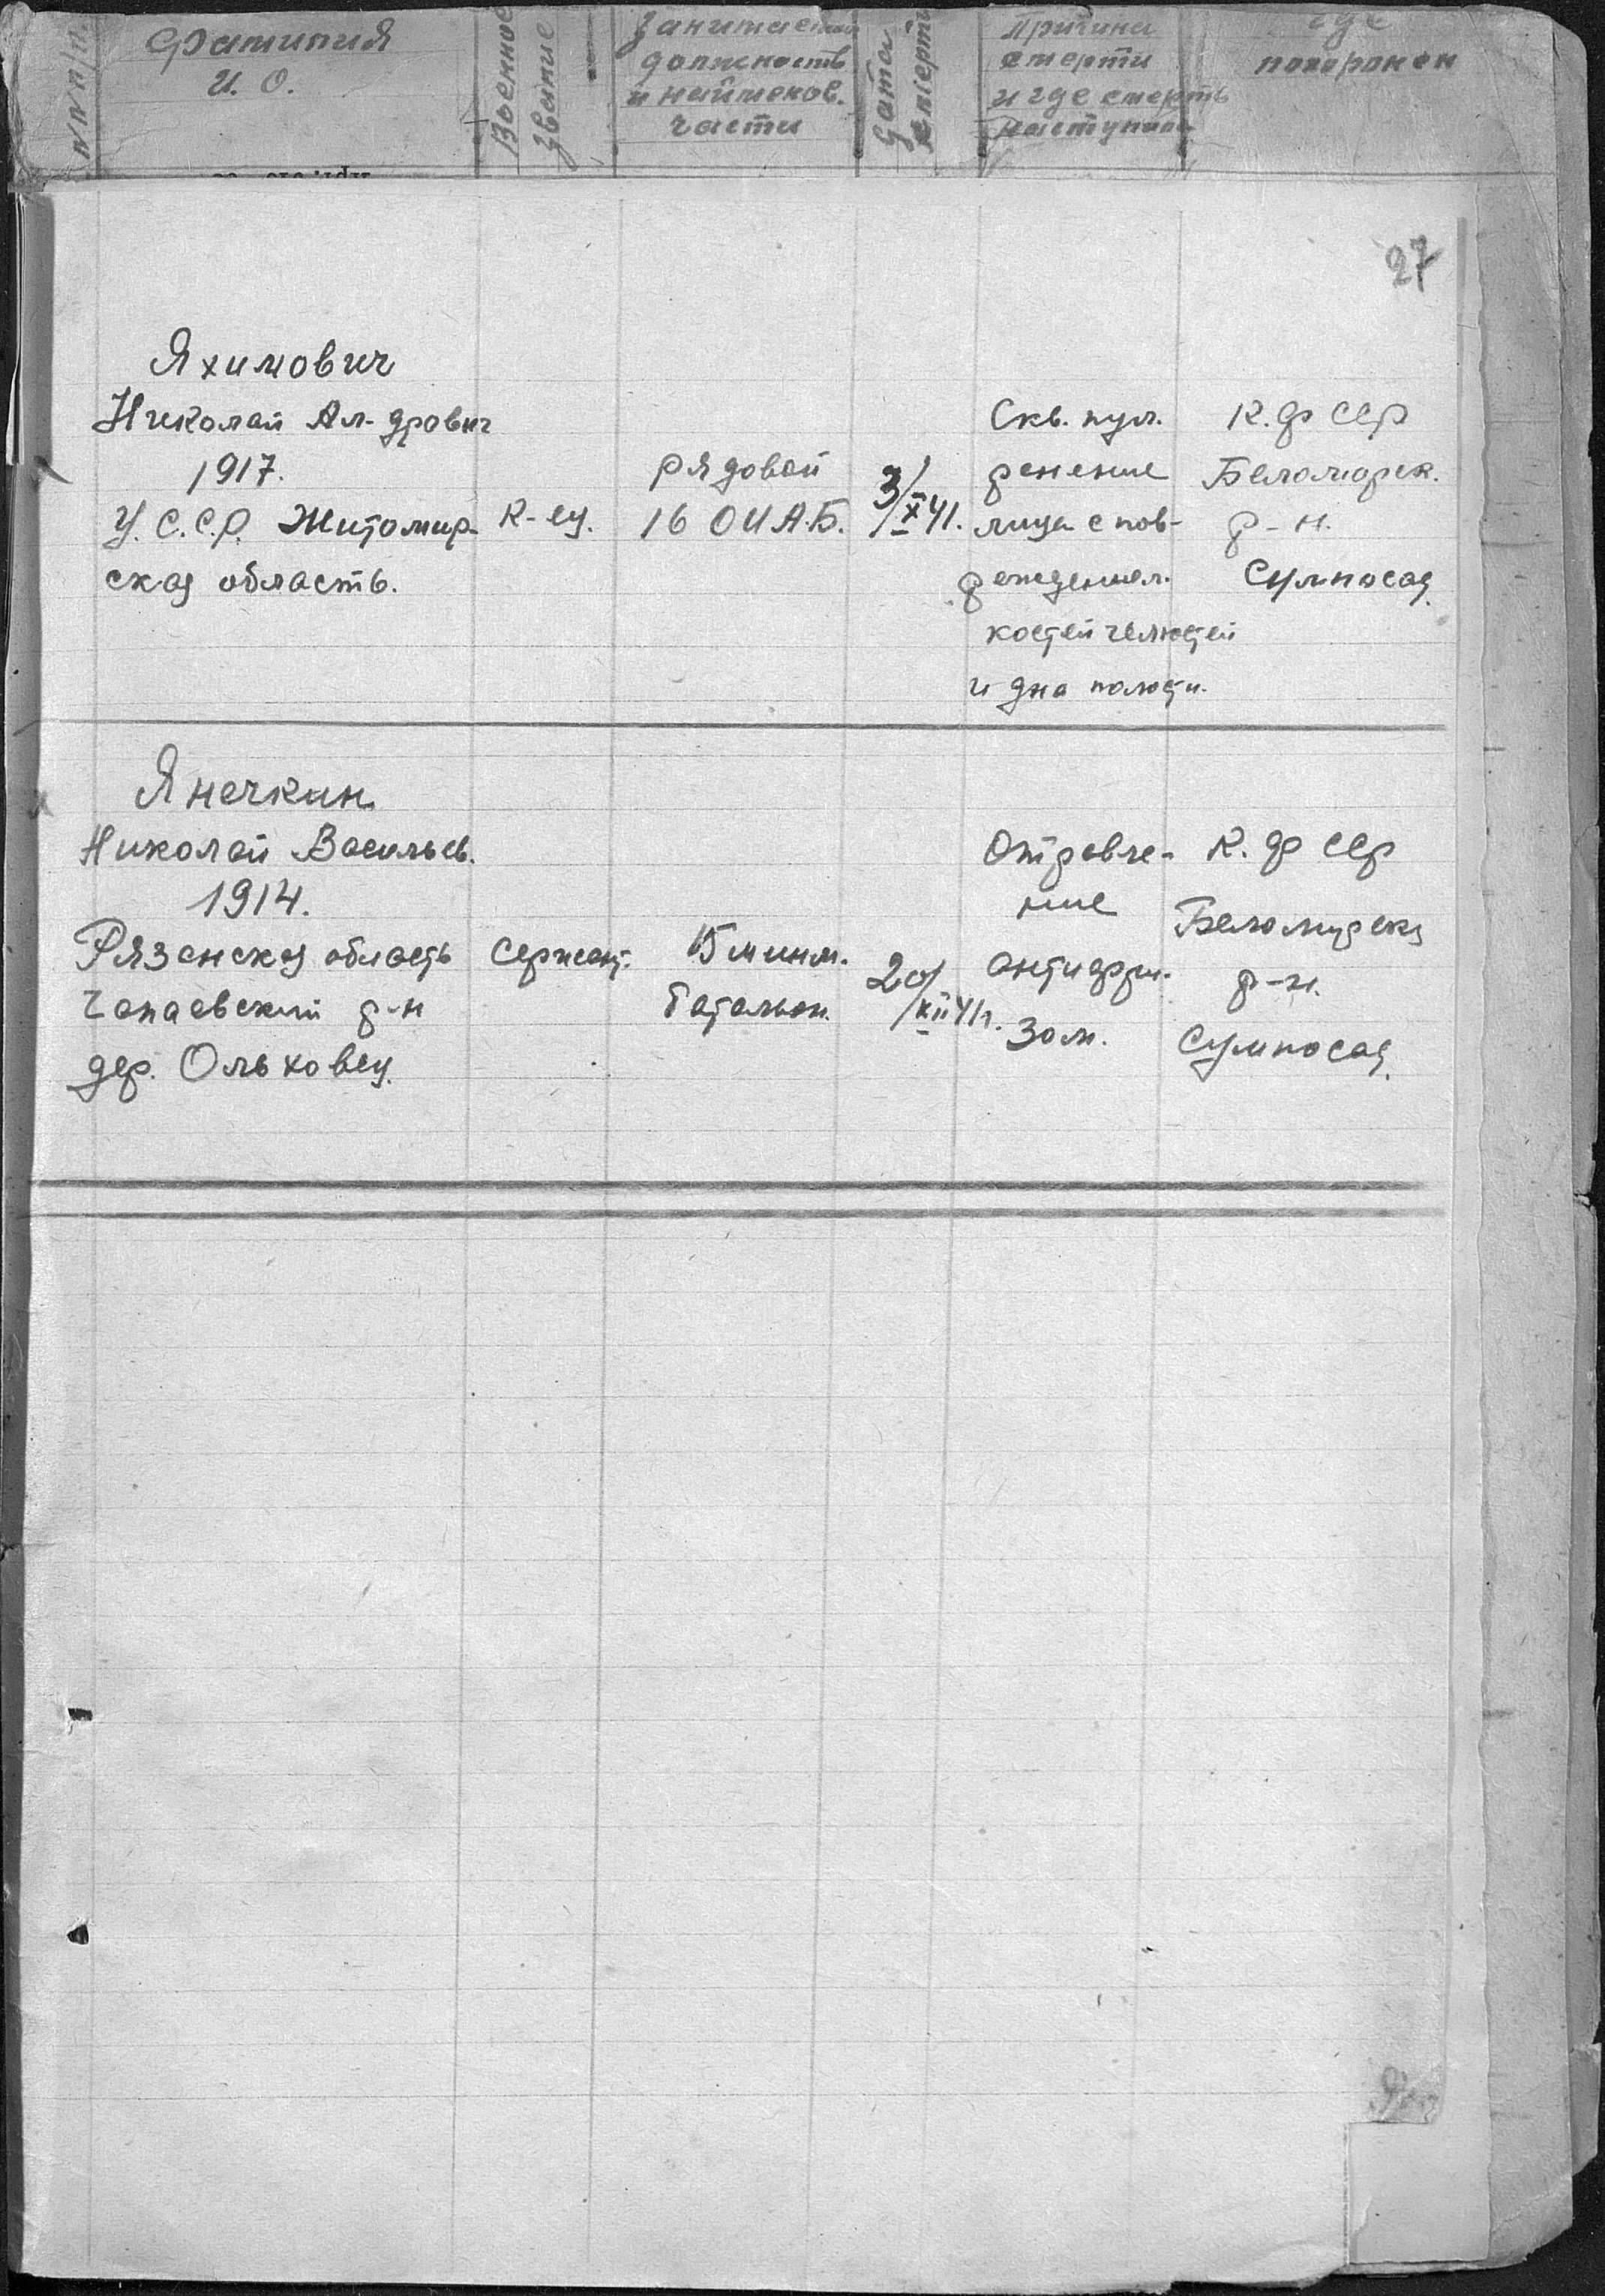 №№ п/п.
Фамилия
И. О.
Военное
звание
Занимаемая
должность
и наименов.
части
Дата
смерти
Причина
смерти
и где смерть
наступила
Где
похоронен
27
Яхимович
Николай Ал-дрович
1917.
У.С.С.Р. Житомир-
ская область.
К-ец.
рядовой
16 ОИАБ.
3/X 41.
Скв. пул.
ранение
лица с пов-
режденыем.
костей челюстей
и дна полости.
К. ф ССР
Беломорск.
р-н.
Сумпосад
Янечкин
Николай Васильев.
1914.
Рязанская область
Чапаевский р-н
дер. Ольховец.
Сержант.
15 мином.
батальон.
20/XII 41г.
Отравле-
ние
антифри-
зом.
К. ф ССР
Беломорский
р-н.
Сумпосад.